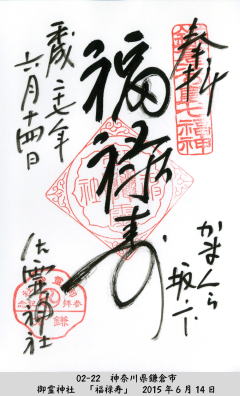 奉拝
かまくら
坂ノ下
福禄寿
平成二十七年
六月十四日
御霊神社
02-22 神奈川県鎌倉市
御霊神社 「福禄寿」 2015年6月14日